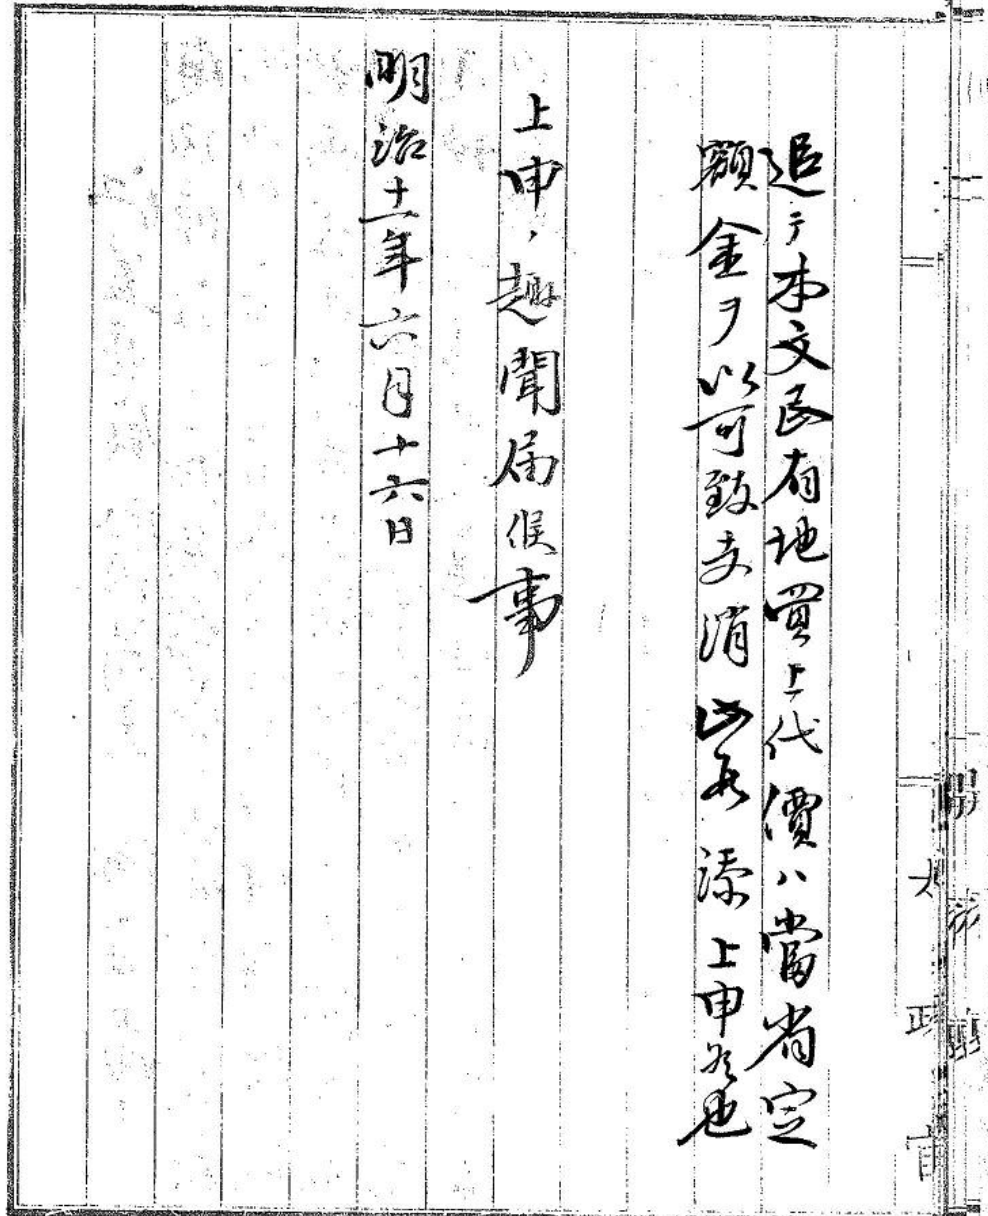 追テ本文民有地買上代價ハ當省定
額金ヲ以可致支消此段添上申候也
上申ノ趣聞届候事
明治十一年六月十六日
太政官